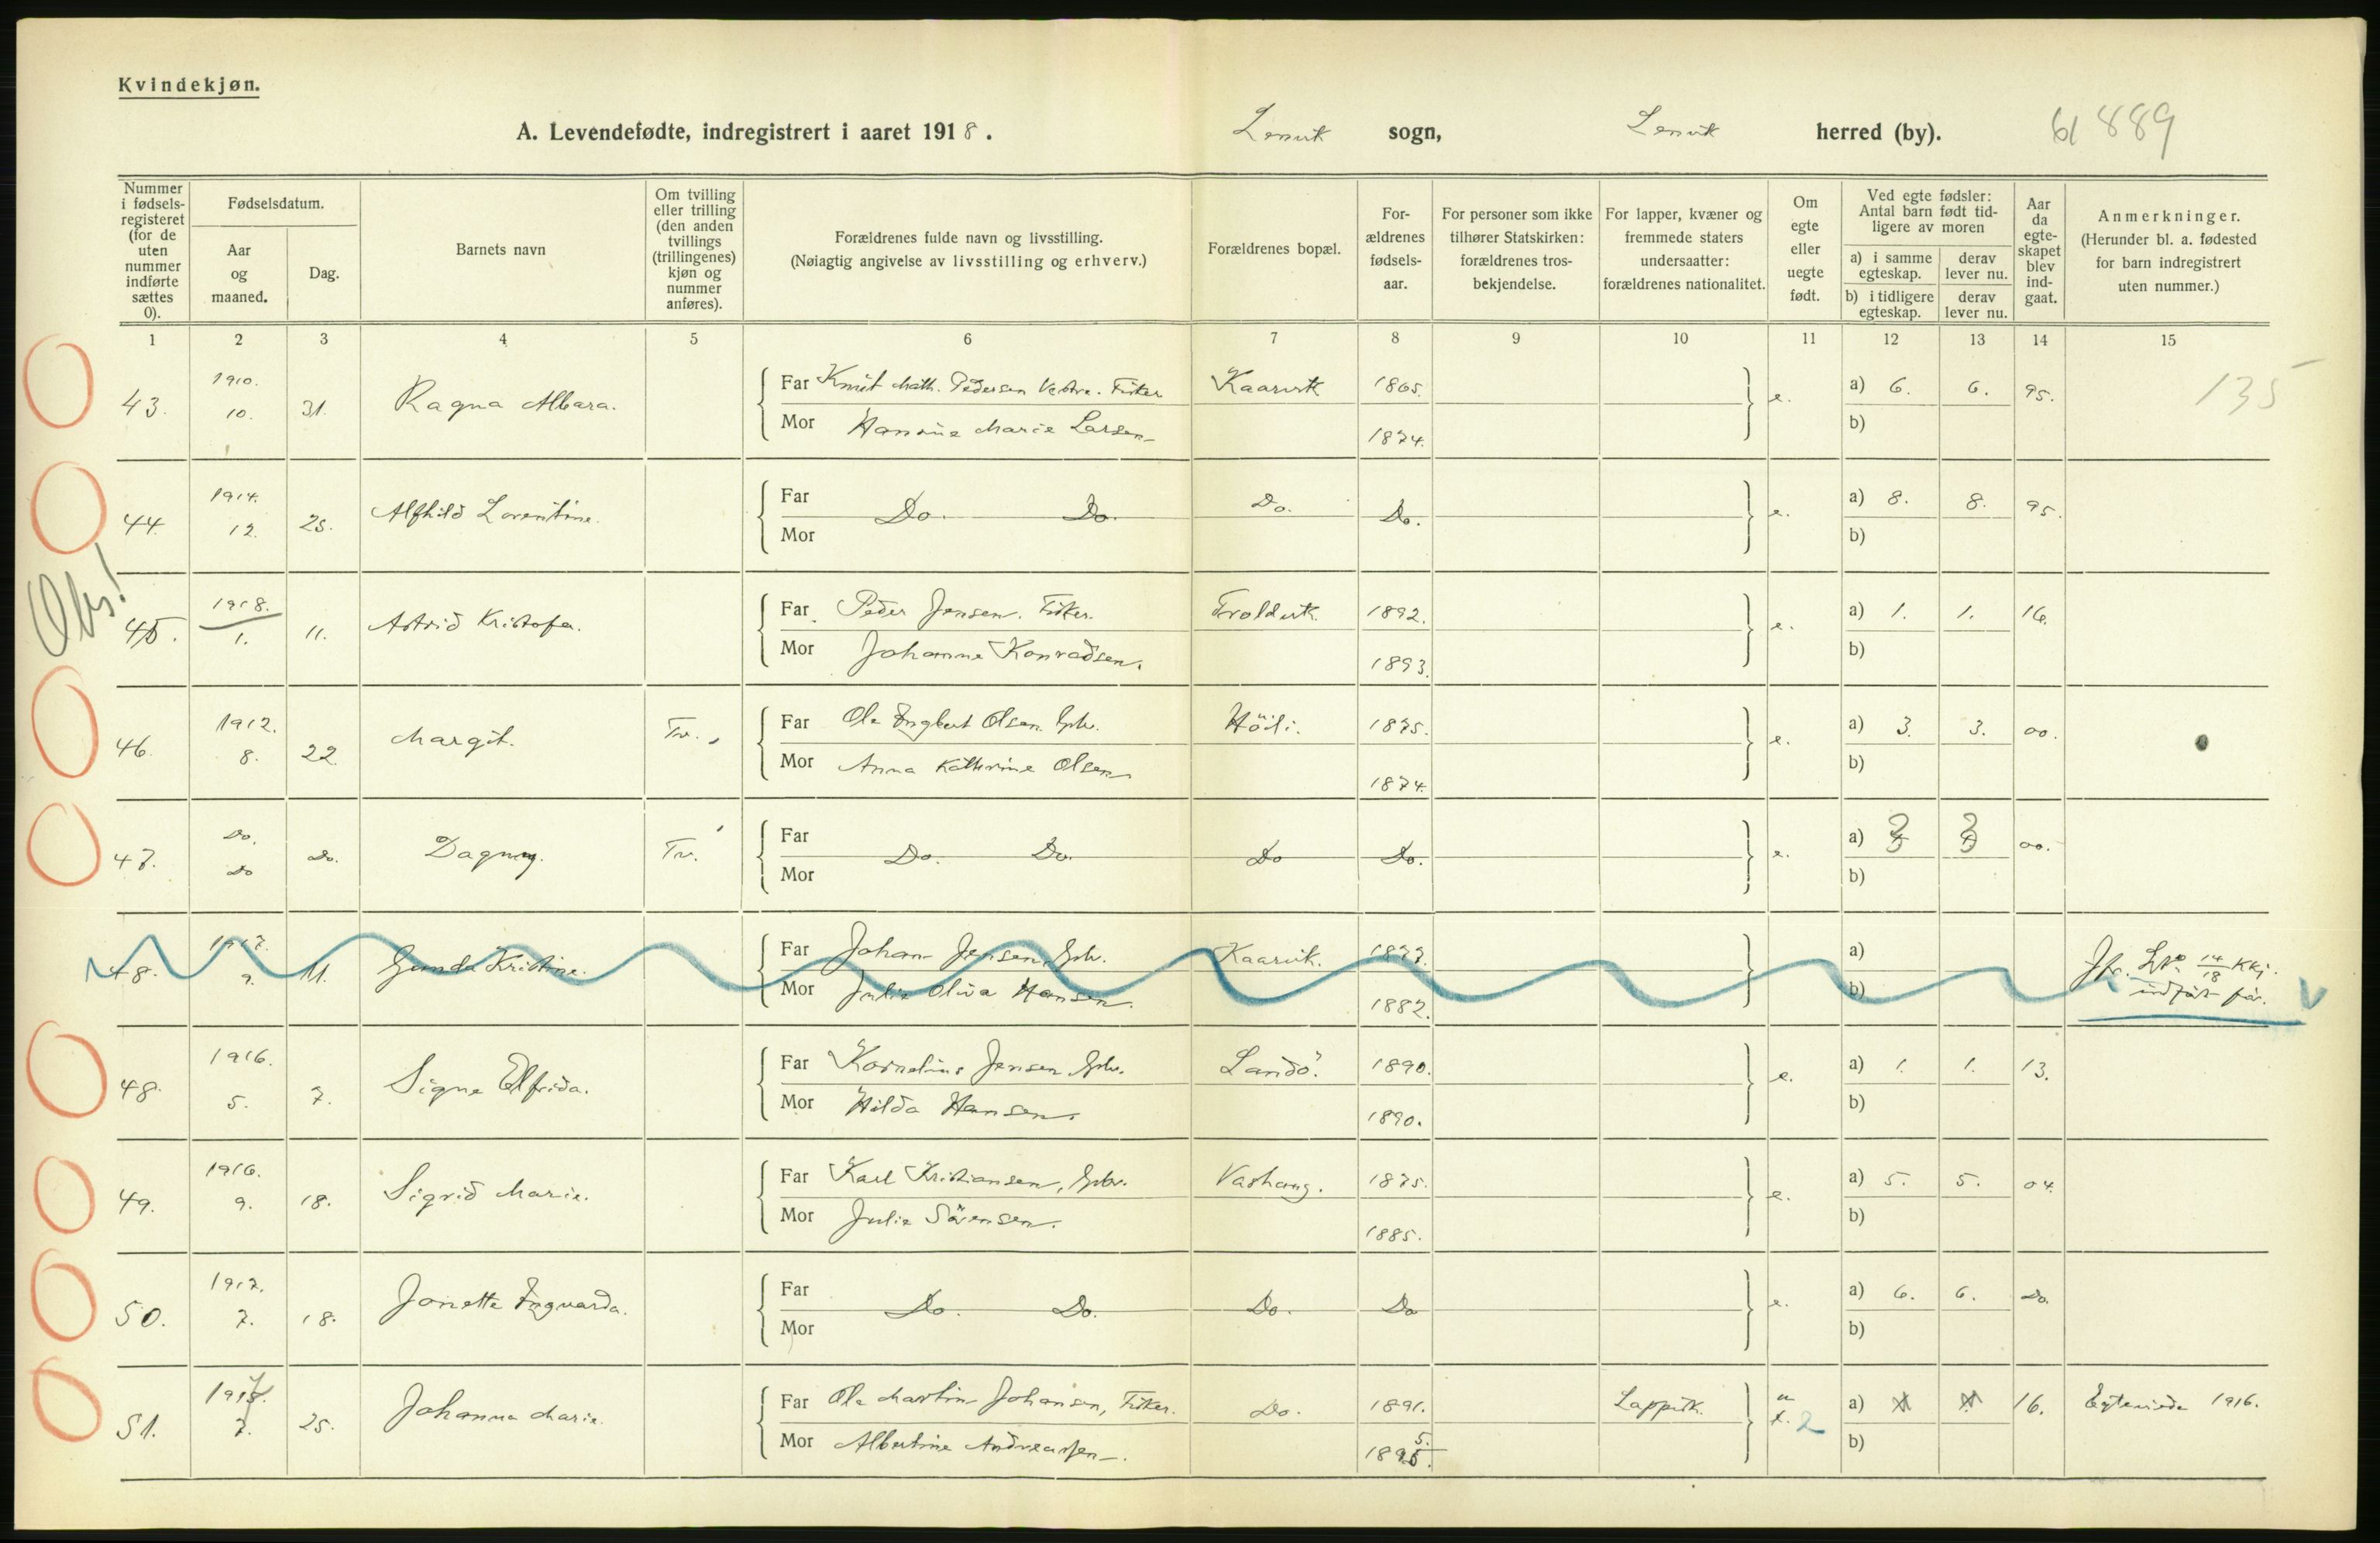 Kvindekjøn.
A. Levendefødte, indregistrert i aaret 1918. Lenvik sogn, Lenvik herred (by). 61 889
Nummer i fødsels-registeret (for de uten nummer indførte sættes 0). Fødselsdatum. Aar og maaned. Dag. Barnets navn Om tvilling eller trilling (den anden tvillings (trillingenes) kjøn og nummer anføres). Forældrenes fulde navn og livsstilling. (Nøiagtig angivelse av livsstilling og erhverv.) Forældrenes bopæl. For-ældrenes fødsels-aar. For personer som ikke tilhører Statskirken: forældrenes tros-bekjendelse. For lapper, kvæner og fremmede staters undersaatter: forældrenes nationalitet. Om egte eller uegte født. Ved egte fødsler: Antal barn født tid-ligere av moren a) i samme egteskap. derav lever nu. b) i tidligere egteskap. derav lever nu. Aar da egte-skapet blev ind-gaat. Anmerkninger. (Herunder bl. a. fødested for barn indregistrert uten nummer.)
1 2 3 4 5 6 7 8 9 10 11 12 13 14 15
43. 1910. 10. 31. Ragna Albara. Far Knut Math. Pedersen Fisker Kaarvik 1865. e. a) 6. 6. 95. 135
Mor Hansine Marie Larsen 1874. b)
44. 1914. 12. 25. Alfhild Lorentine. Far Mor Do. Do. Do. Do. e. a) 8. 8. 95.
b)
Obs!
45. 1918. 1. 11. Astrid Kristofa. Far Peder Jensen. Fisker. Troldvik. 1892. e. a) 1. 1. 16.
Mor Johanne Konradsen. 1893. b)
46. 1912. 8. 22. Margit. Tv. Far Ole Engbert Olsen. Gbr. Höili. 1875. e. a) 3. 3. 00.
Mor Anna Kathrine Olsen 1874. b)
47. Do. Do Do. Dagny. Tv. Far Mor Do. Do. Do Do. e. a) 3 3 00.
b)
48. 1917. 9. 11. Gunda Kristine. Far Johan Jensen, Gbr. Kaarvik. 1877. a) Jfr. Lno 14/18 Kkj.
Mor Julie Oliva Hansen. 1882. b) indført før.
48. 1916. 5. 7. Signe Elfrida. Far Kornelius Jensen Gbr. Landö. 1890. e. a) 1. 1. 13.
Mor Hilda Hansen. 1890. b)
49. 1916. 9. 18. Sigrid Marie. Far Karl Kristiansen, Gbr. Vashaug. 1875. e. a) 5. 5. 04.
Mor Julie Sörensen. 1885. b)
50. 1917. 7. 18. Jonette Ingvarda. Far Mor Do. Do. Do. Do e. a) 6. 6. Do.
b)
51. 7. 25. Johanna Marie. Far Ole Martin Johansen, Fisker. Do. 1891. Lappisk. u 2 a) 16. Egteviede 1916.
Mor Albertine Andreassen. 1895. b)